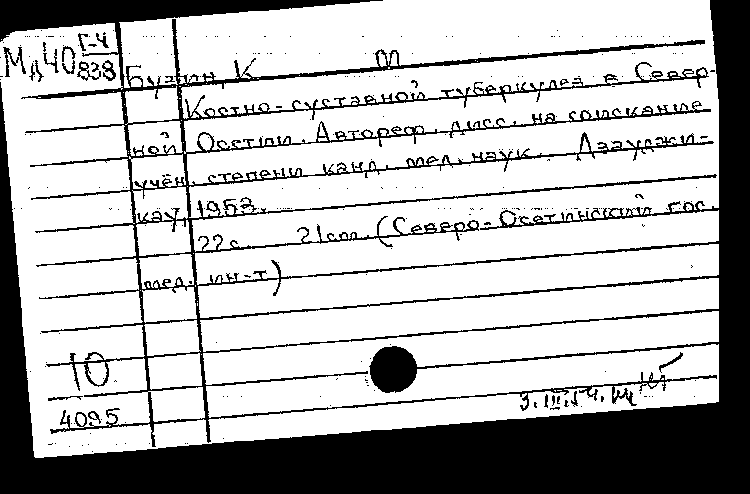 Мд40 Г-4
838
Бузин, К М
Костно-суставной туберкулез в Север-
ной Осетии. Автореф. дисс. на соискание
учён. степени канд. мед. наук. Дзауджи-
кау, 1953.
22 с. 21 см. (Северо-Осетинский гос.
мед. ин-т)
10
4095
3.III.54.